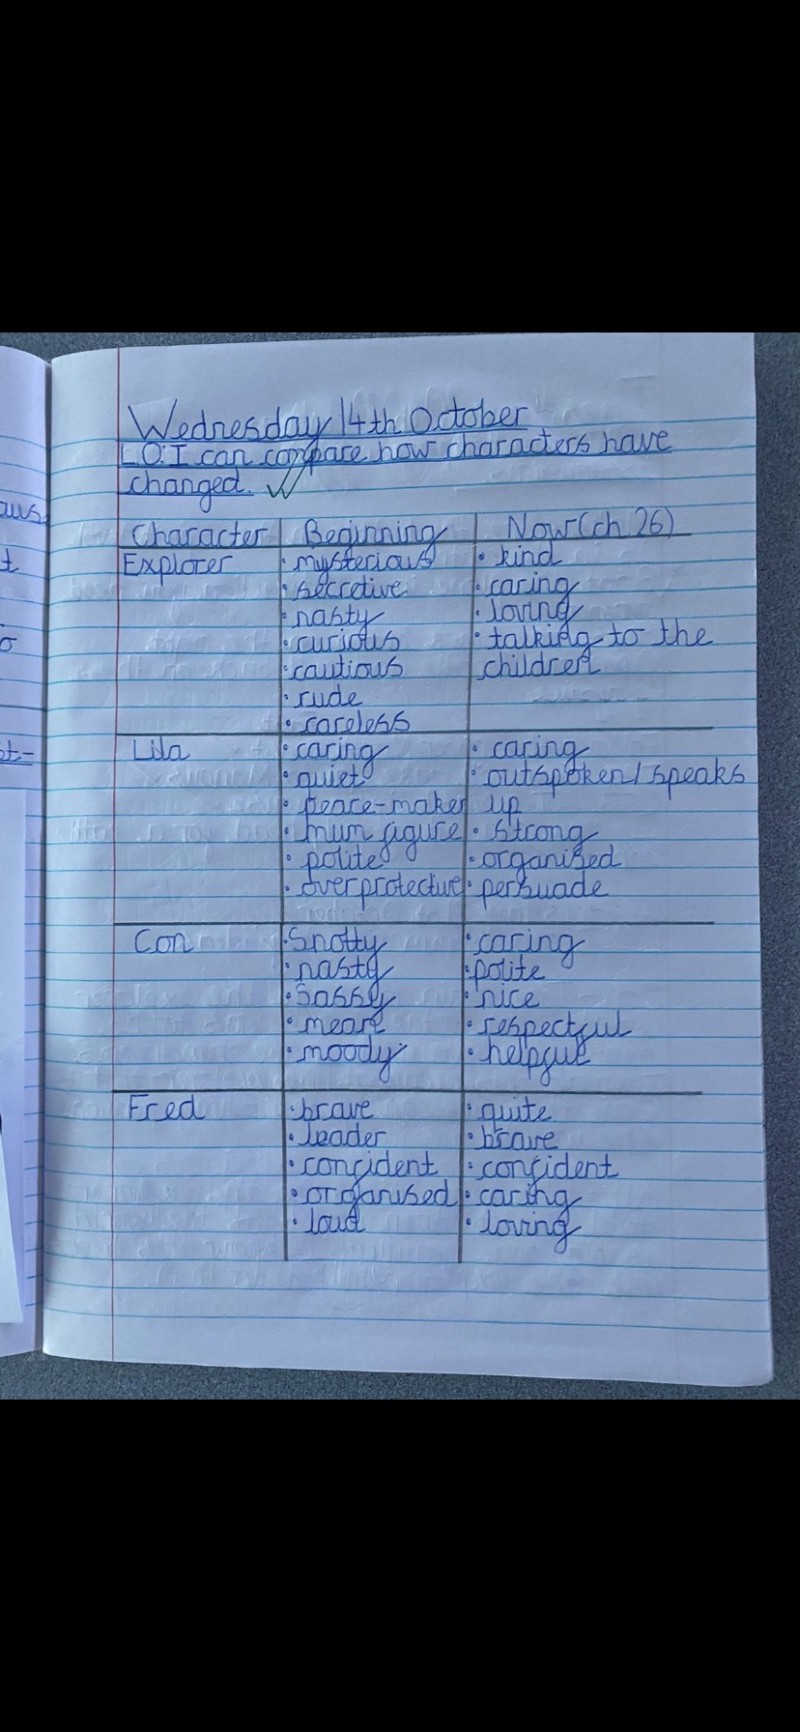 Wednesday 14th October
L.O: I can compare how characters have
changed.
Character Beginning Now (ch 26)
Explorer • mysterious • kind
• secretive • caring
• nasty • loving
• curious • talking to the
• cautious children
• rude
• careless
Lila • caring • caring
• quiet • outspoken / speaks
• peace-maker up
• mum figure • strong
• polite • organised
• overprotective • persuade
Con • Snotty • caring
• nasty • polite
• Sassy • nice
• mean • respectful
• moody • helpful
Fred • brave • quite
• leader • brave
• confident • confident
• organised • caring
• loud • loving